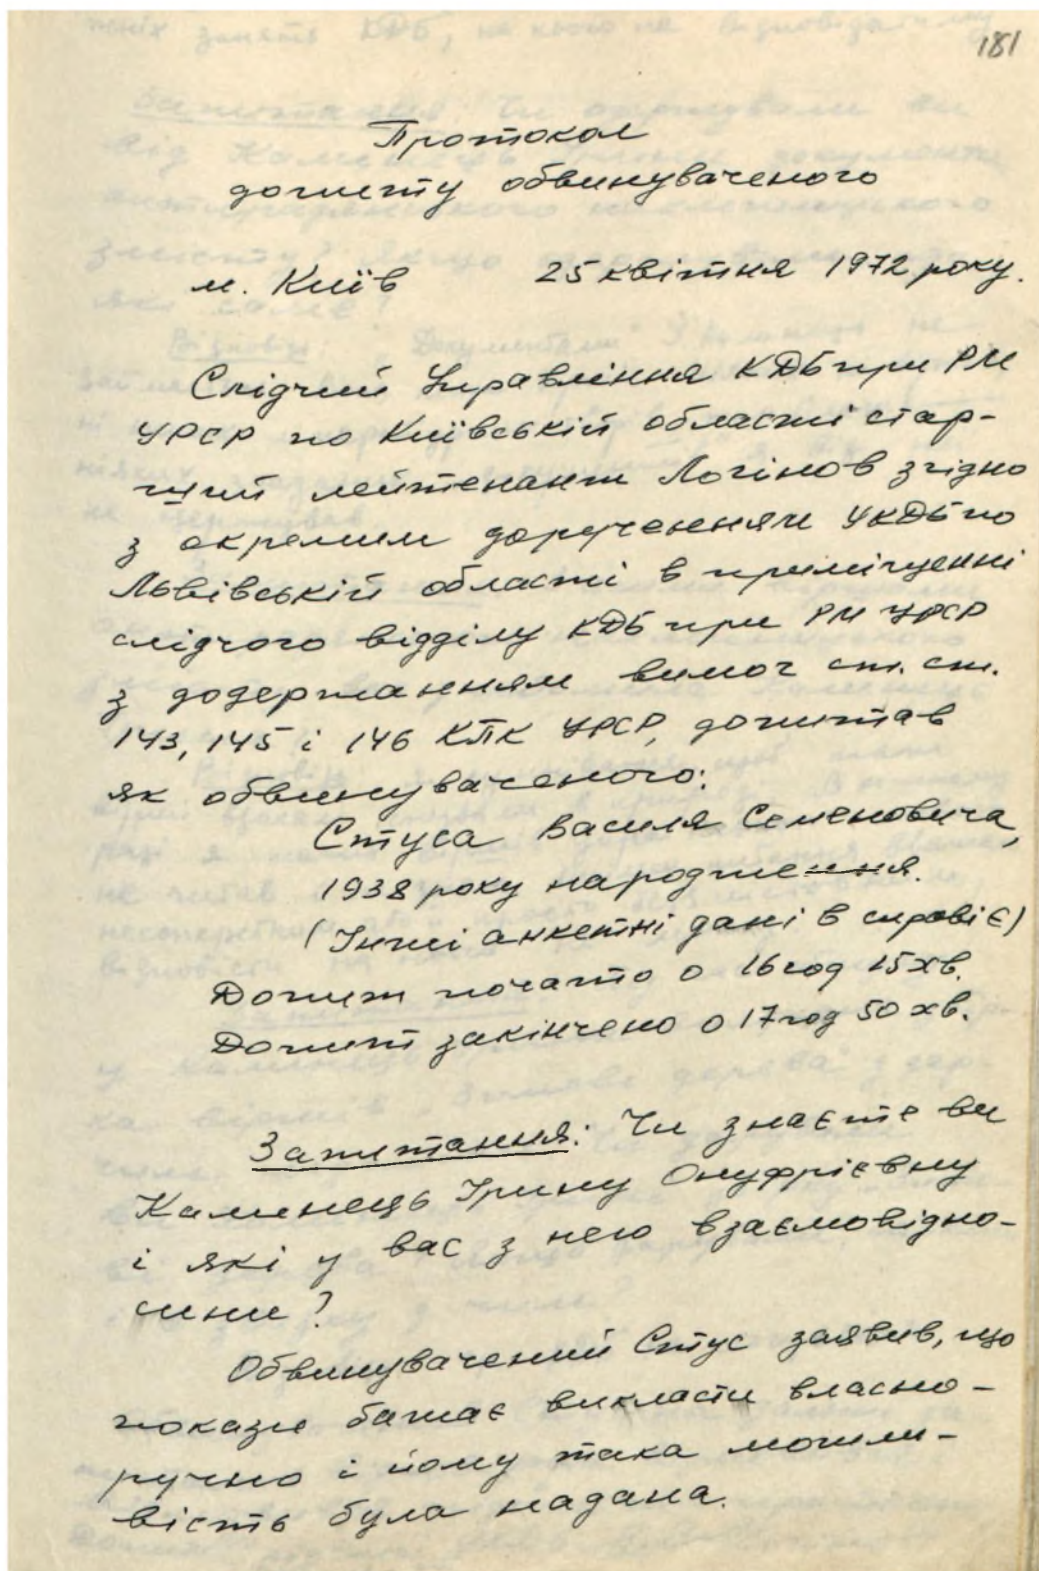 181
Протокол
допиту обвинуваченого
м. Київ 25 квітня 1972 року.
Слідчий Управління КДБ при РМ
УРСР по Київській області стар-
ший лейтенант Логінов згідно
з окремим дорученням УКДБ по
Львівській області в приміщенні
слідчого відділу КДБ при РМ УРСР
з додержанням вимог ст. ст.
143, 145 і 146 КПК УРСР, допитав
як обвинуваченого:
Стуса Василя Семеновича,
1938 року народження.
(Інші анкетні дані в справі є)
Допит почато о 16 год 15 хв.
Допит закінчено о 17 год 50 хв.
Запитання: Чи знаєте ви
Каминець Ірину Онуфрієвну
і які у вас з нею взаємовідно-
сини?
Обвинувачений Стус заявив, що
покази бажає викласти власно-
ручно і йому така можли-
вість була надана.